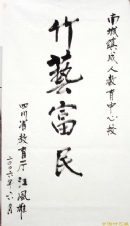 南城镇成人教育中心校
竹藝富民
四川省教育厅 汪風雄
二〇〇六年六月